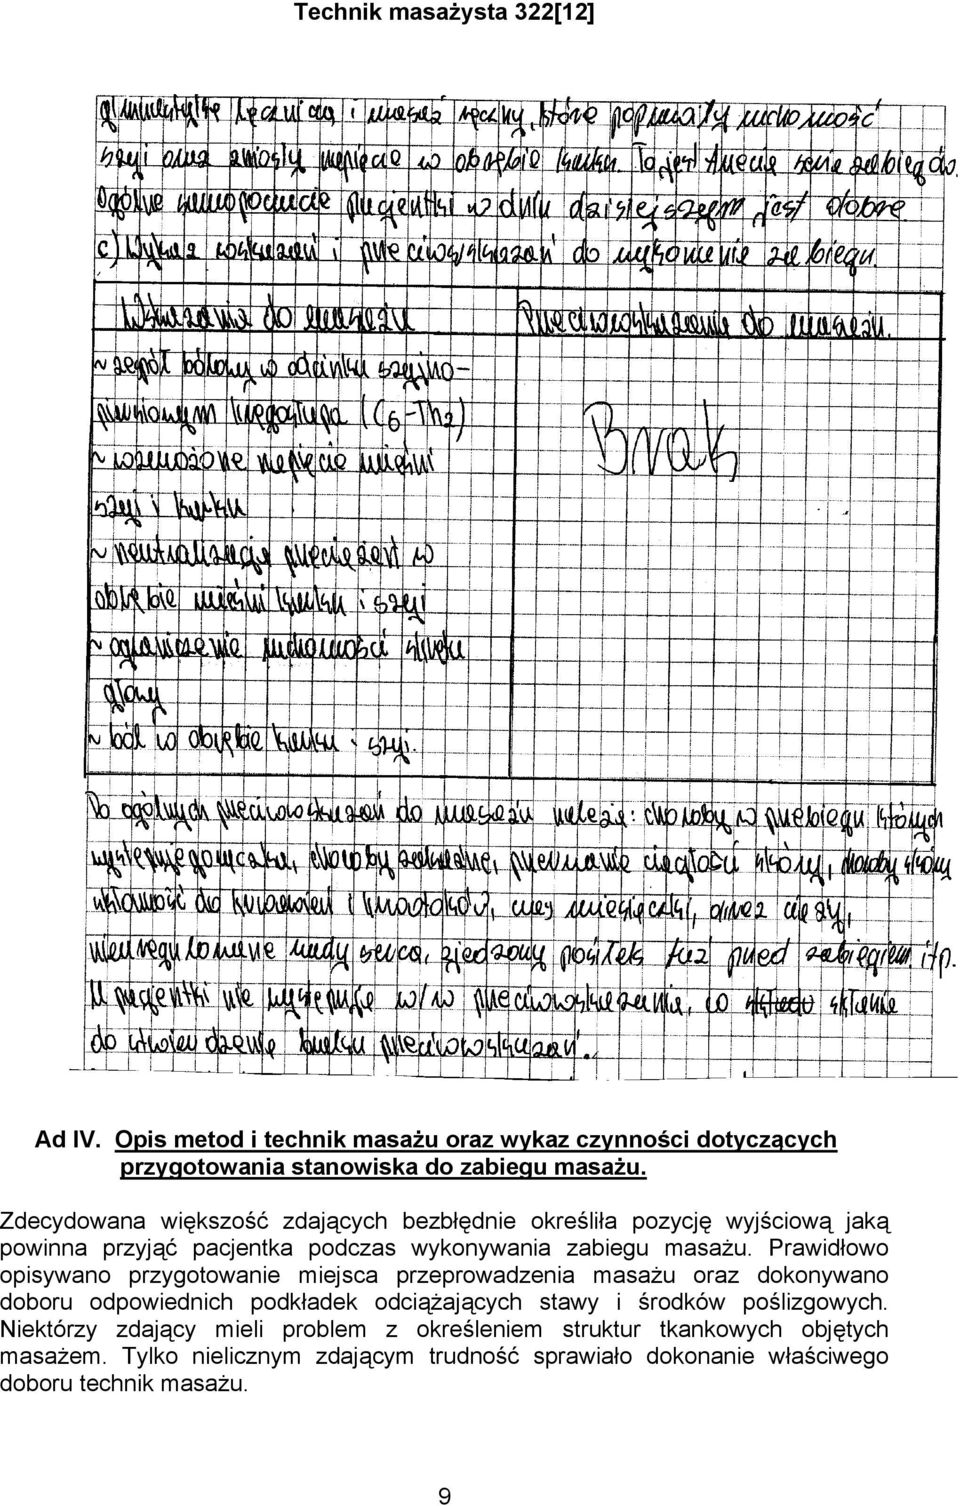 Technik masażysta 322[12]
gimnastykę leczniczą i masaż ręczny, które poprawiły ruchomość
szyi oraz zniosły napięcie w obrębie karku. To jest trzecia seria zabiegów.
Ogólne samopoczucie pacjentki w dniu dzisiejszegm jest dobre
c) Wykaz wskazań i przeciwwskazań do wykonania zabiegu.
Wskazania do masażu
Przeciwwskazania do masażu.
~ zespół bólowy w odcinku szyjno-
piersiowym kręgosłupa (C6-Th2)
~ wzmożone napięcie mięśni
szyi i karku
~ neutralizacja przeciążeń w
obrębie mięśni karku i szyi
~ ograniczenie ruchomości skrętu
głowy
~ ból w obrębie karku i szyi.
Brak
Do ogólnych przeciwwskazań do masażu należą: choroby w przebiegu których
występuje gorączka, choroby zakaźne, przerwanie ciągłości skóry, choroby skóry
skłonność do krwawień i krwotoków, czas miesiączki, oraz ciąży,
nieuregulowane wady serca, zjedzony posiłek tuż przed zabiegiem itp.
U pacjentki nie występuje w/w przeciwwskazania, co skłania
do stwierdzenia braku przeciwwskazań.
Ad IV. Opis metod i technik masażu oraz wykaz czynności dotyczących
przygotowania stanowiska do zabiegu masażu.
Zdecydowana większość zdających bezbłędnie określiła pozycję wyjściową jaką
powinna przyjąć pacjentka podczas wykonywania zabiegu masażu. Prawidłowo
opisywano przygotowanie miejsca przeprowadzenia masażu oraz dokonywano
doboru odpowiednich podkładek odciążających stawy i środków poślizgowych.
Niektórzy zdający mieli problem z określeniem struktur tkankowych objętych
masażem. Tylko nielicznym zdającym trudność sprawiało dokonanie właściwego
doboru technik masażu.
9